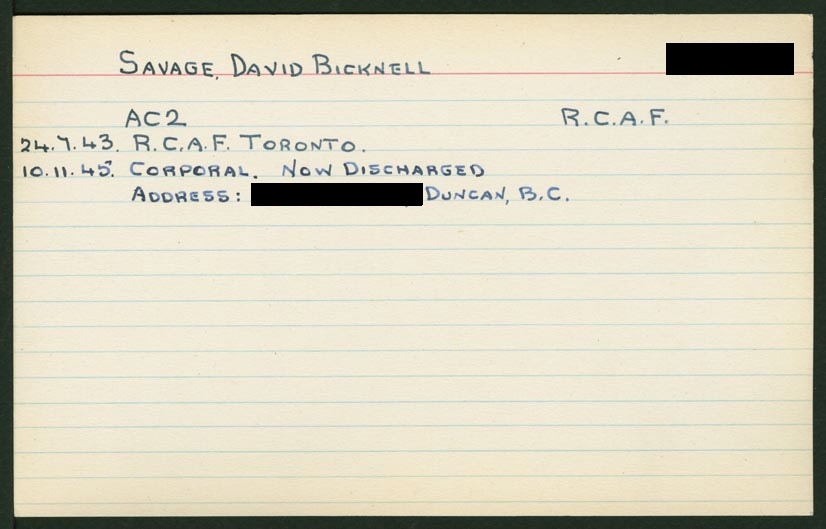 SAVAGE, DAVID BICKNELL
AC2 R.C.A.F.
24.7.43. R.C.A.F. TORONTO.
10.11.45. CORPORAL. NOW DISCHARGED
ADDRESS: DUNCAN, B.C.